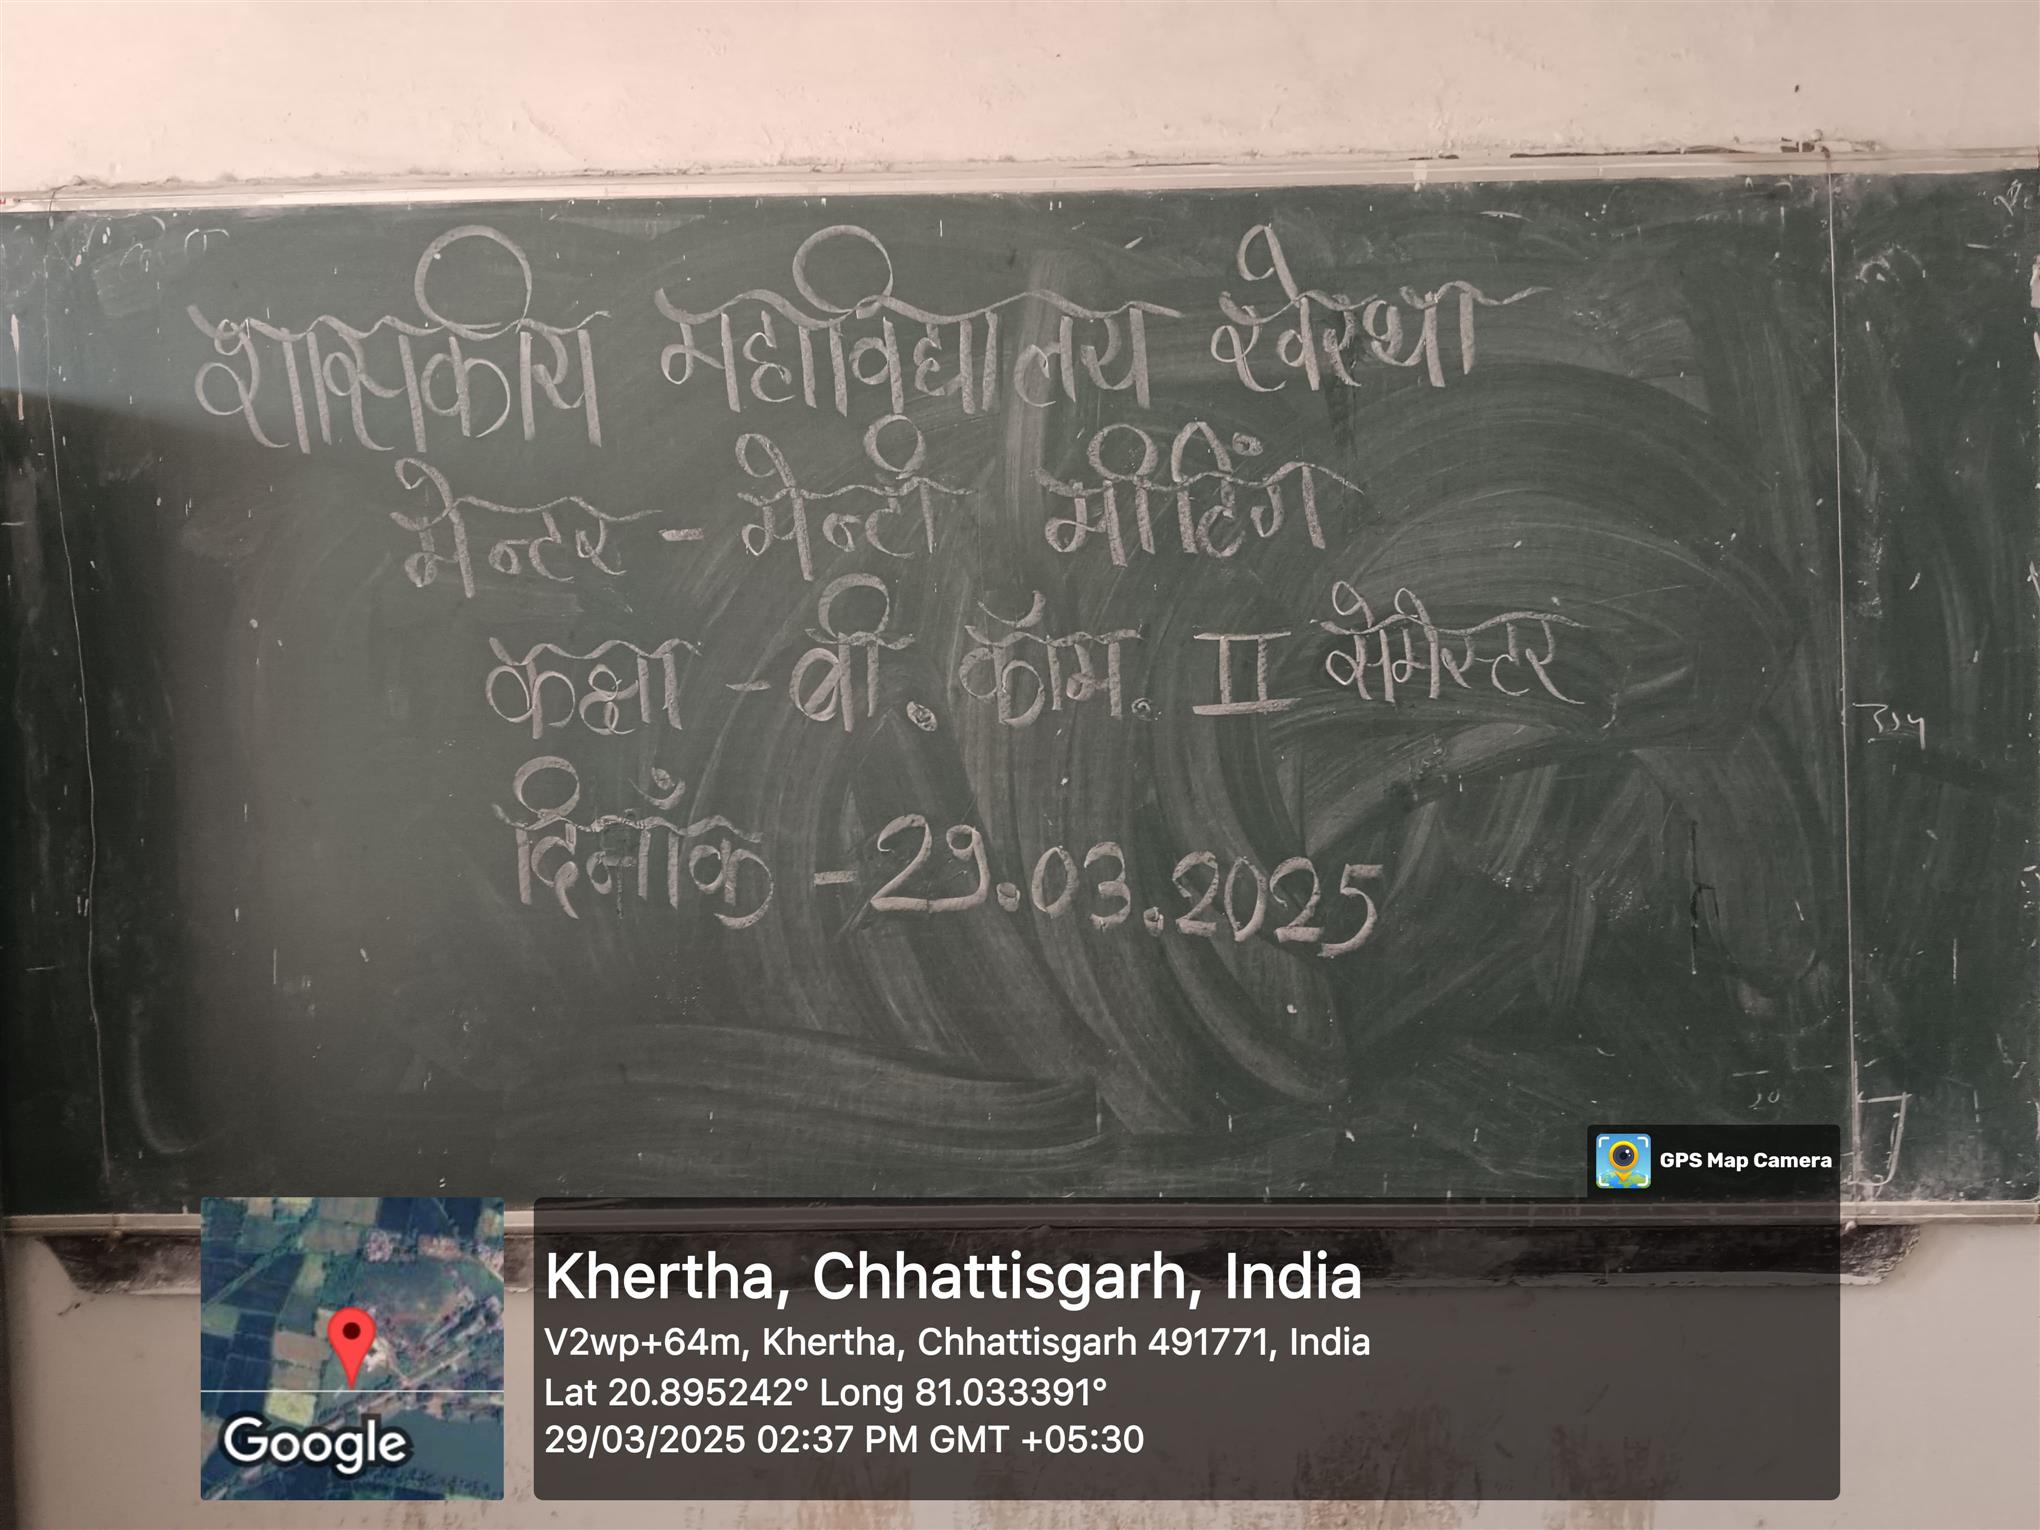 शासकीय महाविद्यालय खेरथा
मेन्टर - मेन्टी मीटिंग
कक्षा - बी. कॉम. II सेमेस्टर
दिनाँक - 29.03.2025
GPS Map Camera
Khertha, Chhattisgarh, India
V2wp+64m, Khertha, Chhattisgarh 491771, India
Lat 20.895242° Long 81.033391°
29/03/2025 02:37 PM GMT +05:30
Google